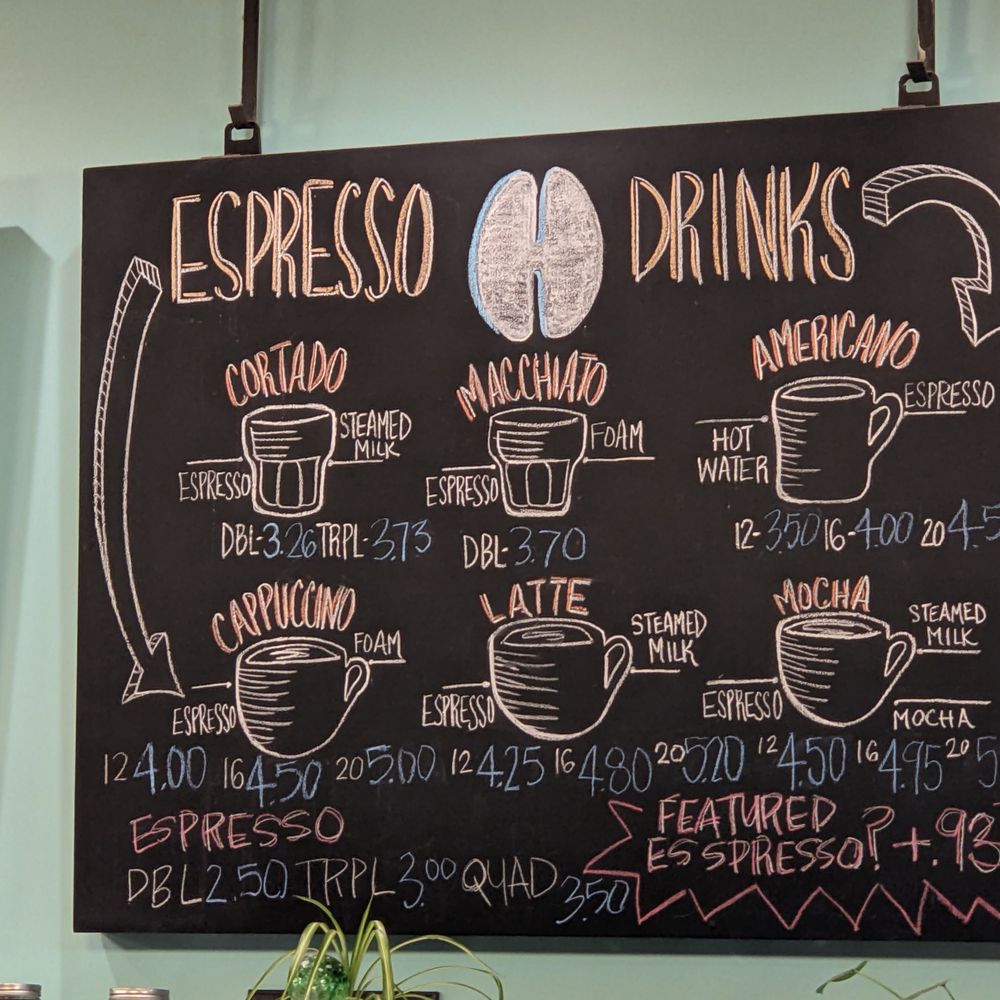 ESPRESSO DRINKS
CORTADO
STEAMED
MILK
ESPRESSO
DBL-3.26 TRPL-3.73
MACCHIATO
FOAM
ESPRESSO
DBL-3.70
AMERICANO
ESPRESSO
HOT
WATER
12-3.50 16-4.00 20 4.5
CAPPUCCINO
FOAM
ESPRESSO
12 4.00 16 4.50 20 5.00
LATTE
STEAMED
MILK
ESPRESSO
12 4.25 16 4.80 20 5.20
MOCHA
STEAMED
MILK
ESPRESSO
MOCHA
12 4.50 16 4.95 20 5
ESPRESSO
DBL 2.50 TRPL 3.00 QUAD 3.50
FEATURED
ESSPRESSO? +.93